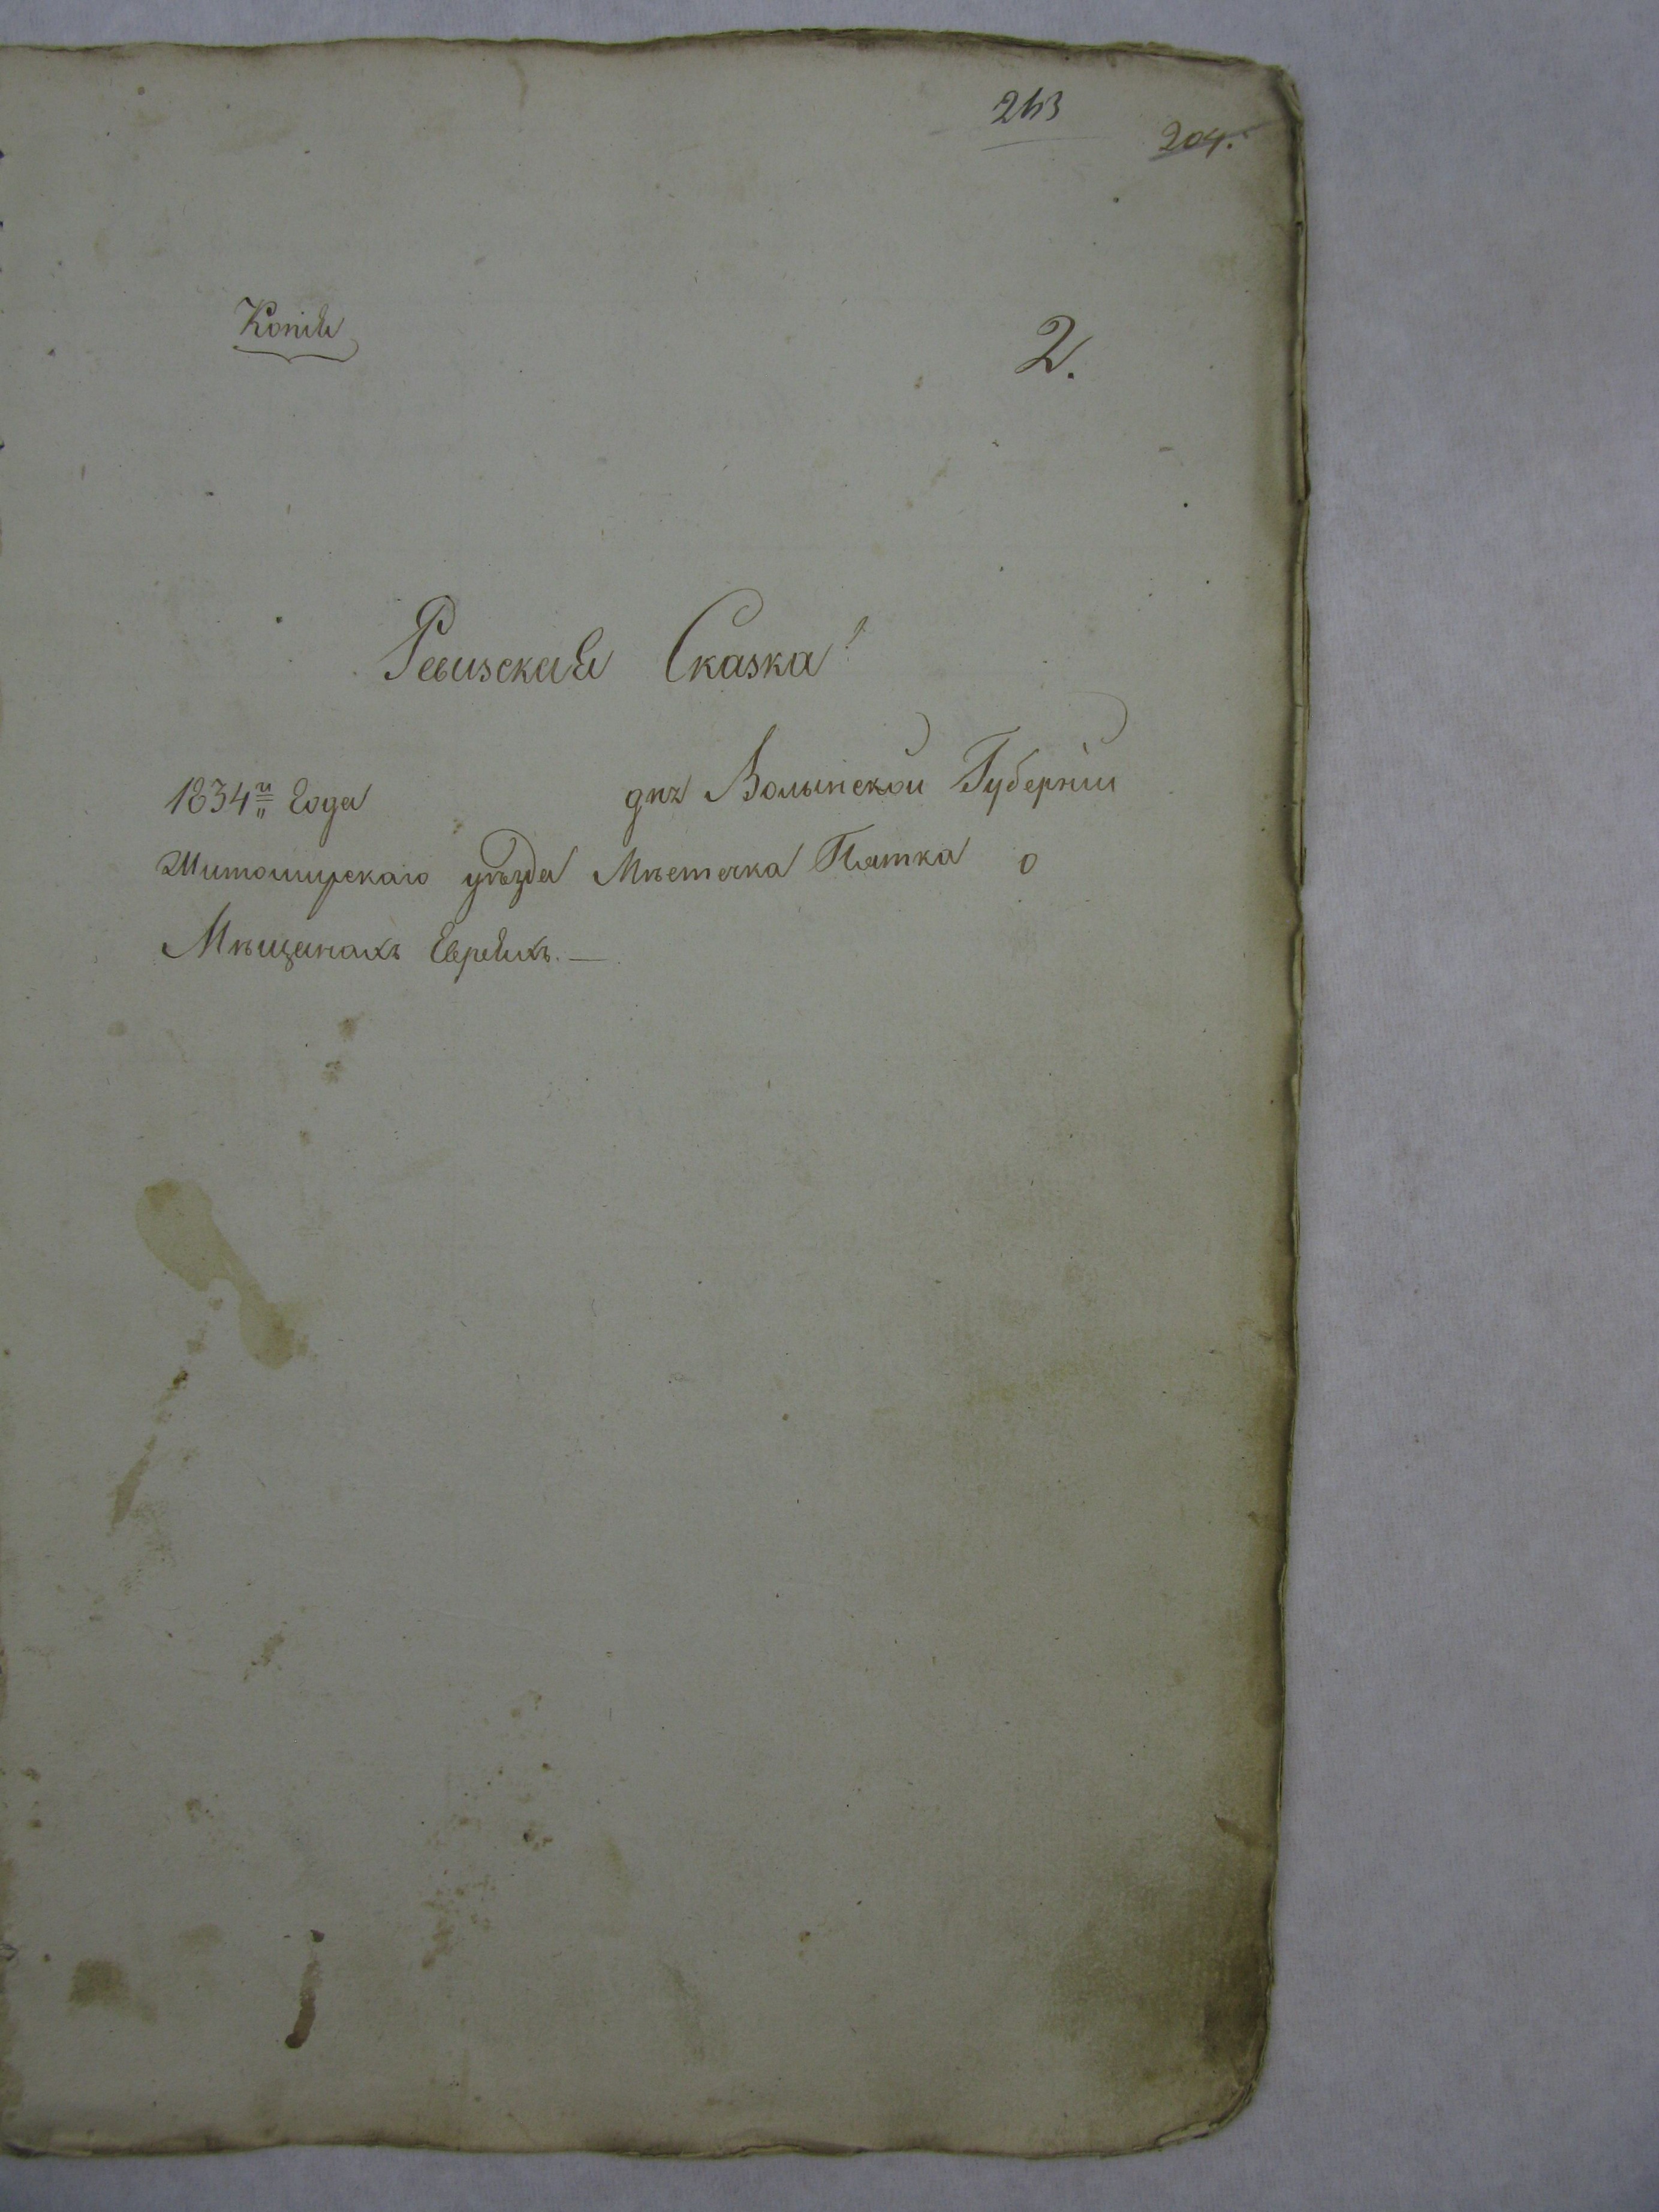 263
204.
Копія
2.
Ревизская Сказка
1834го Года дня Волынской Губерніи
Житомирскаго уѣзда Мѣстечка Пятка о
Мѣщанахъ Евреяхъ.—